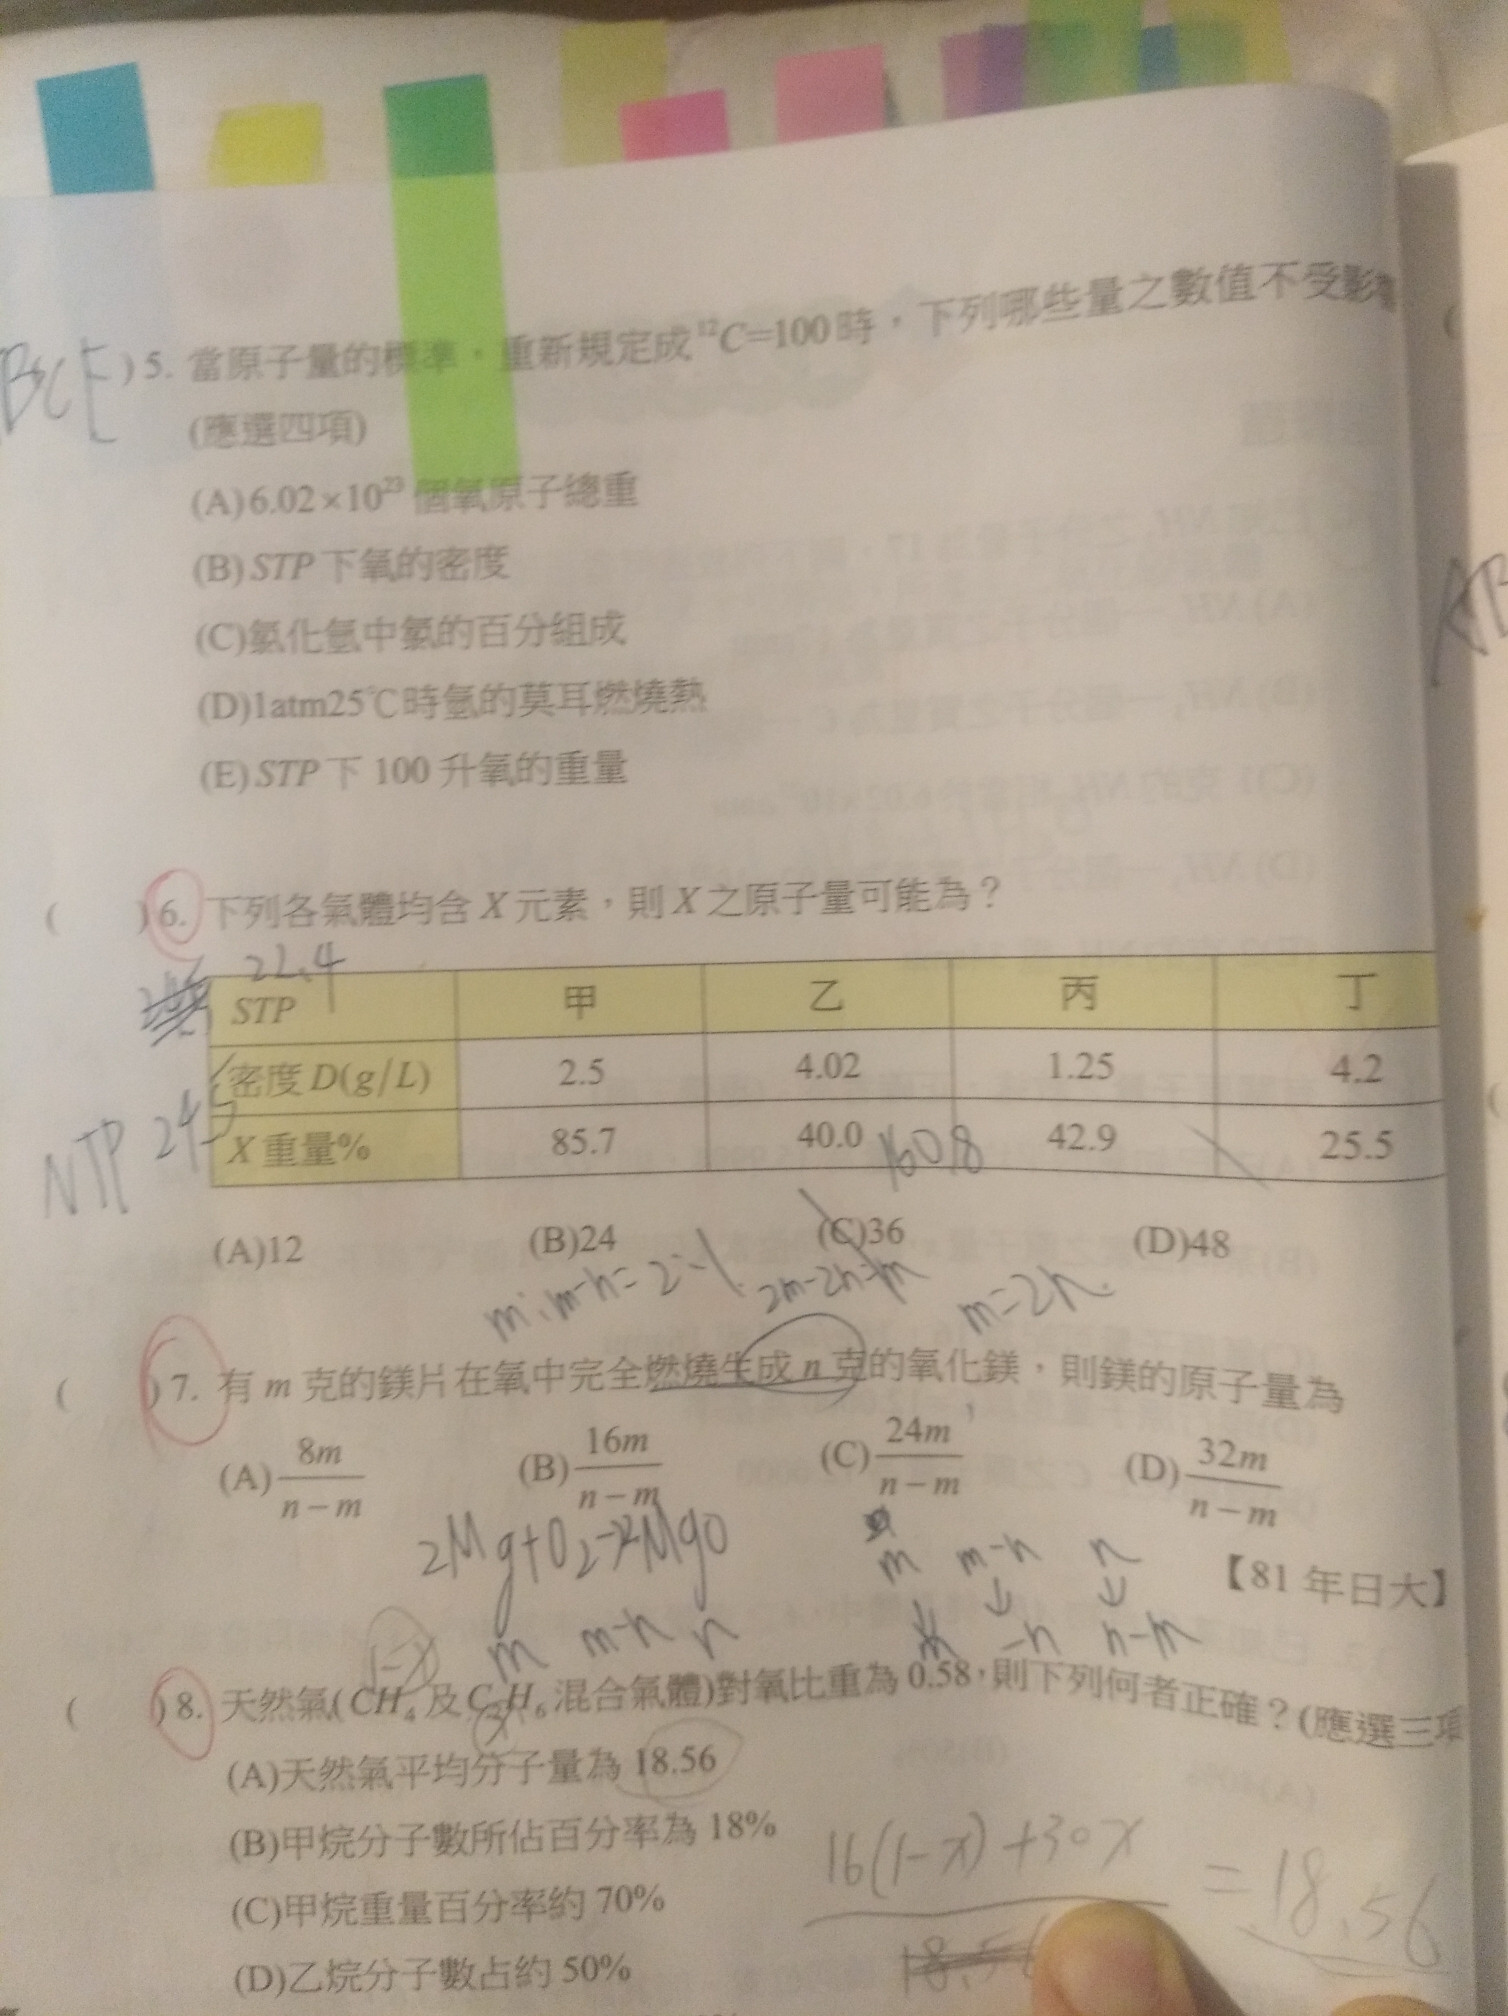 BCE )5. 當原子量的標準,重新規定成¹²C=100時,下列哪些量之數值不受影
(應選四項)
(A)6.02×10²³ 個氧原子總重
(B)STP下氧的密度
(C)氯化氫中氯的百分組成
(D)1atm25℃時氫的莫耳燃燒熱
(E)STP下 100 升氧的重量
( )6. 下列各氣體均含X元素,則X之原子量可能為?
22.4
STP 甲 乙 丙 丁
密度D(g/L) 2.5 4.02 1.25 4.2
NTP 24.5
X重量% 85.7 40.0 42.9 25.5
160.8
(A)12 (B)24 (C)36 (D)48
m:m-n=2:1 2m-2n=m m=2n
( )7. 有m克的鎂片在氧中完全燃燒生成n克的氧化鎂,則鎂的原子量為
(A) 8m/n-m (B) 16m/n-m (C) 24m/n-m (D) 32m/n-m
2Mg+O₂→2MgO
m m-n n
【81年日大】
m m-n n
-n n-m
1-x
( )8. 天然氣(CH₄及C₂H₆混合氣體)對氧比重為0.58,則下列何者正確?(應選三項
x
(A)天然氣平均分子量為 18.56
(B)甲烷分子數所佔百分率為 18%
16(1-x)+30x = 18.56
(C)甲烷重量百分率約 70%
(D)乙烷分子數占約 50%